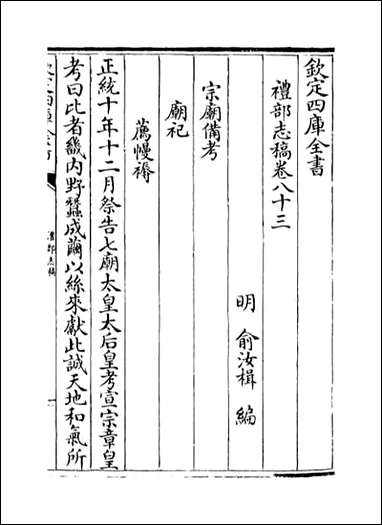 欽定四庫全書
禮部志稿卷八十三
明 俞汝楫 編
宗廟備考
廟祀
薦幔褥
正統十年十二月祭告七廟太皇太后皇考宣宗章皇
考曰比者畿内野蠶成繭以絲來獻此誠天地和氣所
禮部志稿
一